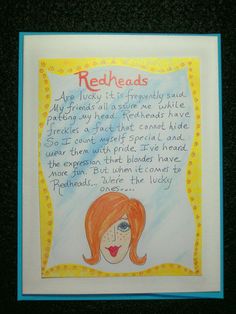 Redheads
Are lucky it is frequently said
My friends all assure me while
patting my head. Redheads have
freckles a fact that cannot hide
So I count myself special and
wear them with pride. I've heard
the expression that blondes have
more fun. But when it comes to
Redheads... Were the lucky
ones.....